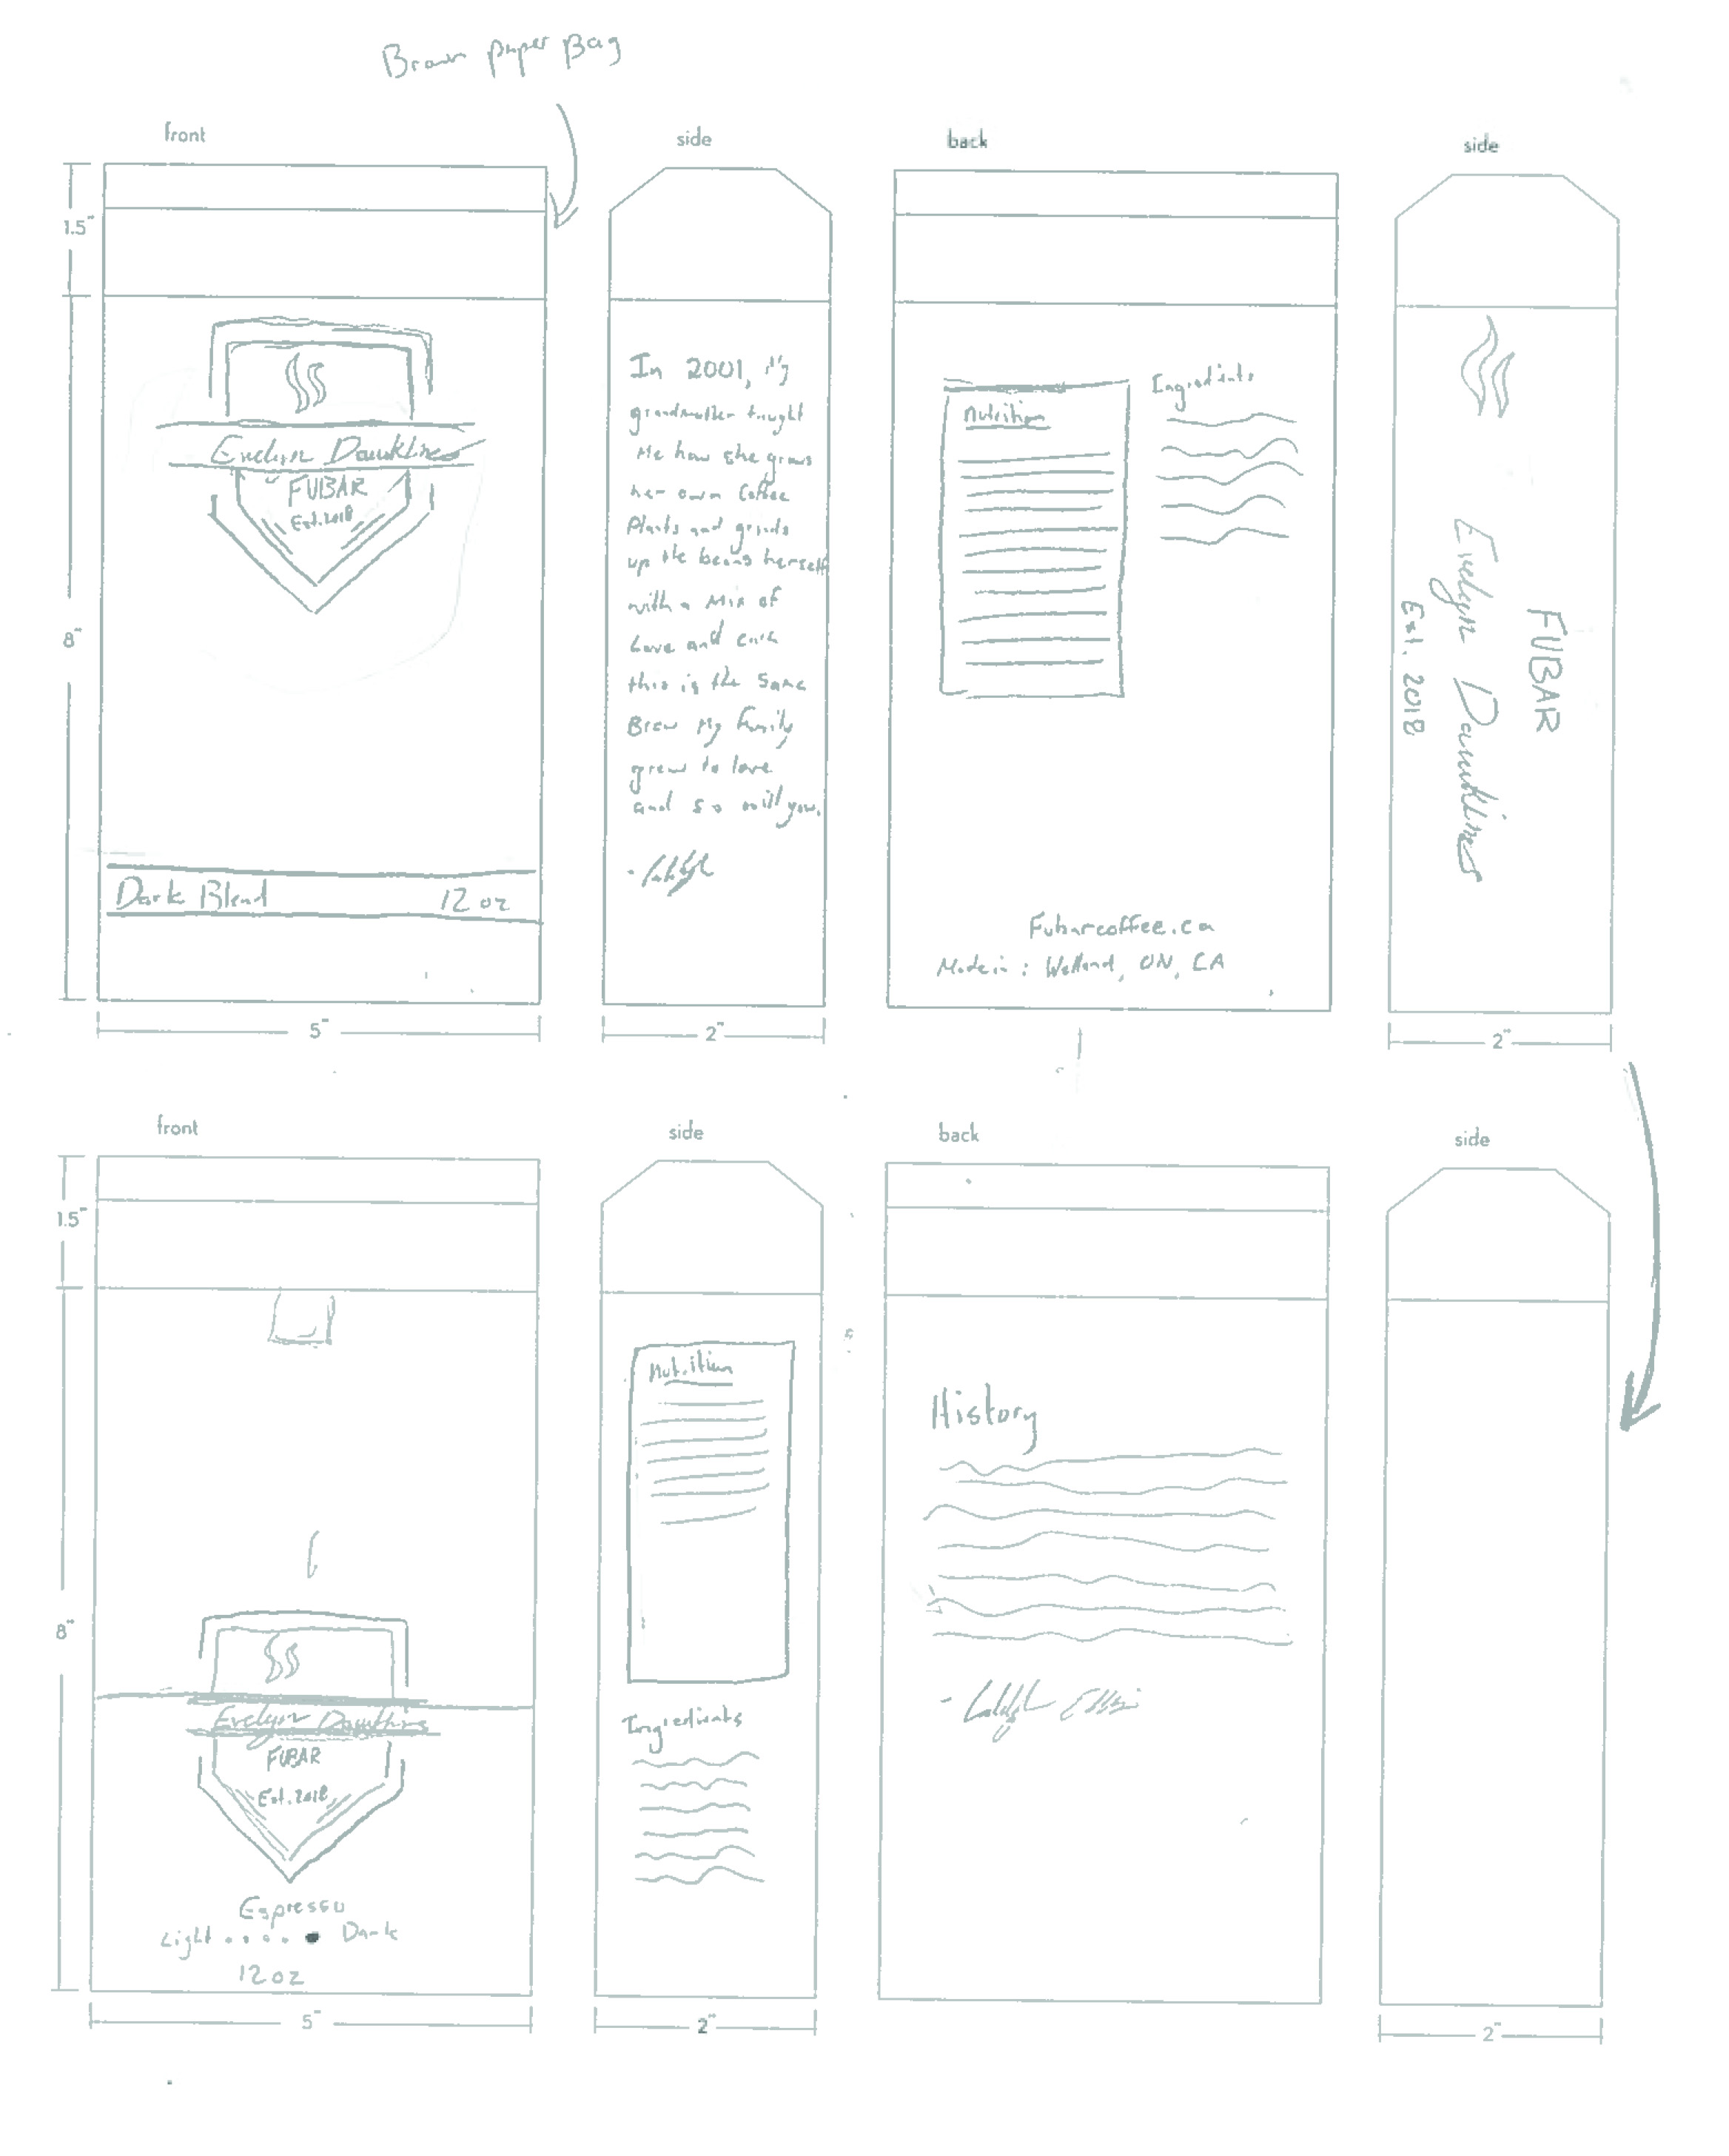 Brown paper Bag
front
side
back
side
1.5"
8"
Evelyn Dawkline
FUBAR
Est. 2018
Dark Blend 12 oz
5"
In 2001, My
grandmother taught
Me how she grows
her own Coffee
Plants and grinds
up the beans herself
with a Mix of
Love and
this is the Same
Brew My Family
grew to love
and so will you.
2"
Nutrition
Ingredients
Fubarcoffee.ca
Made in: Welland, ON, CA
FUBAR
Evelyn Dawklines
Est. 2018
2"
front
side
back
side
1.5"
8"
Evelyn Dawklins
FUBAR
Est. 2018
Espresso
Light Dark
12 oz
5"
Nutrition
Ingredients
2"
History
2"